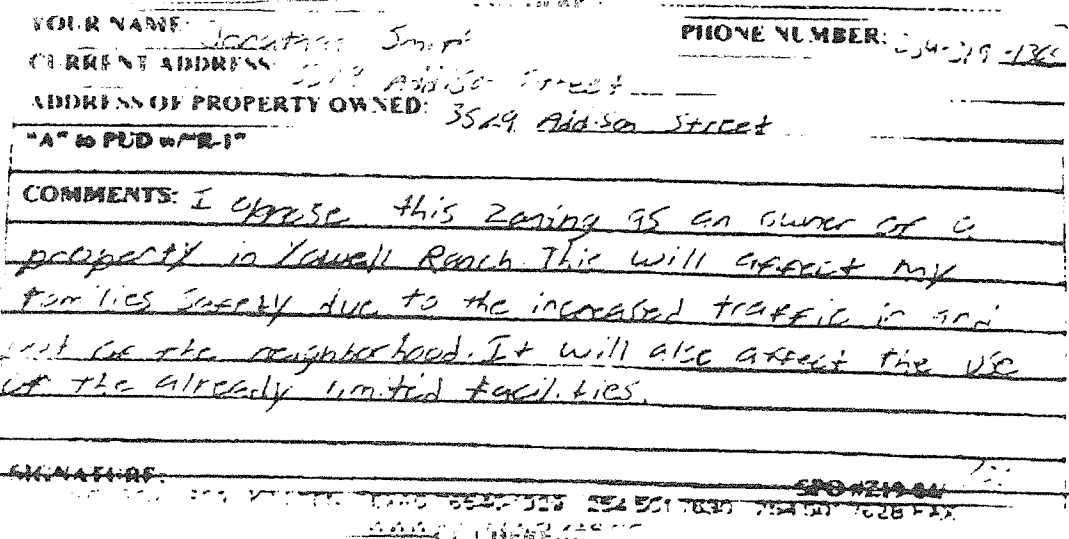 YOUR NAME: Jonathan Smith
PHONE NUMBER:
CURRENT ADDRESS: Addison Street
ADDRESS OF PROPERTY OWNED: 3529 Addison Street
"A" to PUD w/"R-1"
COMMENTS: I oppose this zoning as an owner of a
property in Yowell Ranch. This will affect my
families safety due to the increased traffic in and
out of the neighborhood. It will also affect the use
of the already limitid facilities.
SIGNATURE: